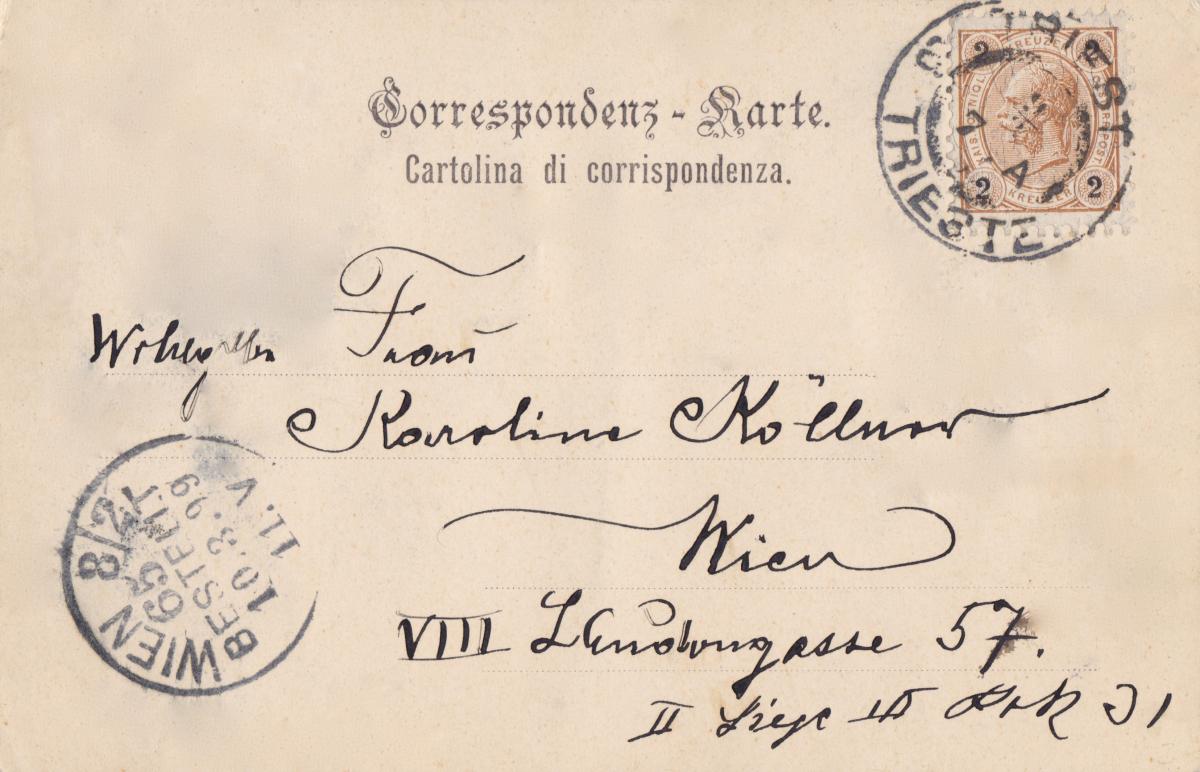 Correspondenz-Karte.
Cartolina di corrispondenza.
TRIEST
TRIESTE
2 KREUZER 2
2 KREUZER 2
Frau
Karoline Köllner
Wien
VIII Laudongasse 57.
II Stiege
WIEN 8/2
BESTELLT
10.3.99
11.V